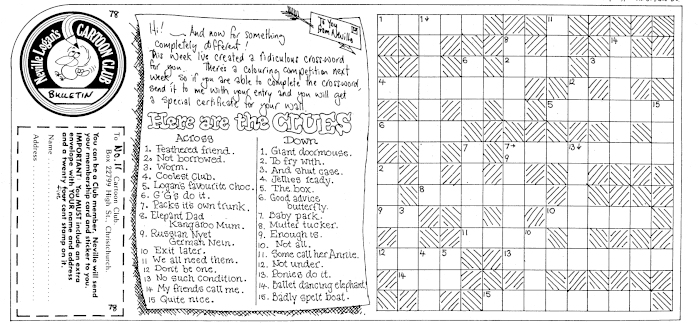 78
Neville Logan's
CARTOON CLUB
BULLETIN
To You
from Neville
Hi! And now for something
completely different!
This week Ive created a ridiculous crossword
for you. Theres a colouring competition next
week so if you are able to complete the crossword,
send it to me with your entry and you will get
a special certificate for your wall.
Here are the CLUES
ACROSS
1. Feathered friend.
2. Not borrowed.
3. Worm.
4. Coolest Club.
5. Logan's favourite choc.
6. G'G's do it.
7. Packs its own trunk.
8. Elepant Dad
Kangaroo Mum.
9. Russian Nyet
German Nein.
10 Exit later.
11 We all need them.
12 Dont be one.
13 No such condition.
14 My friends call me.
15 Quite nice.
Down
1. Giant doormouse.
2. To fry with.
3. And shut case.
4. Jellies ready.
5. The box.
6. Good advice
butterfly.
7. Baby park.
8. Mutter tucker.
9. Enough is.
10. Not all.
11. Some call her Annie.
12. Not under.
13. Ponies do it.
14. Ballet dancing elephant
15. Badly spelt boat.
To No. 11 Cartoon Club,
Box 22799 High St., Christchurch.
You can be a Club member, Neville will send
your membership card and sticker to you.
IMPORTANT: You MUST include an extra
envelope with YOUR name and address
and a twenty four cent stamp on it.
Name
Age
Address
78
1 1 11
8 14
6 2 3
4 12
5 15
6
7 7 13
9
2
8
9 3
11 10
12 4 5 13
14
15